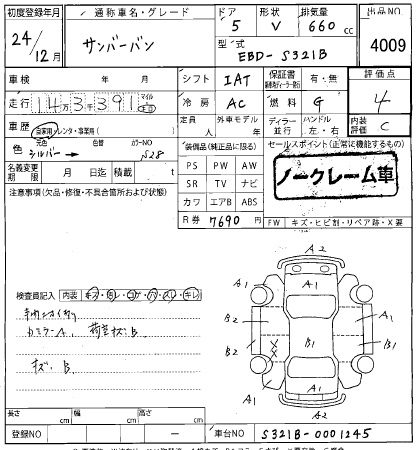 初度登録年月 通称車名・グレード ドア 形状 排気量 出品NO
24/12月 サンバーバン 5 V 660cc 4009
型式 EBD-S321B
車検 年 月 シフト IAT 保証書 有・無 評価点
走行 14万3千391 マイル キロ 冷房 AC 燃料 G 4
車歴 自家用・レンタ・事業用( ) 定員 人 外車モデル 年 ディーラー 並行 ハンドル 左・右 内装評価 C
色 元色 シルバー → 色替 カラーNO S28
名義変更期限 月 日迄 積載 t
装備品(純正品に限る) セールスポイント(正常に機能するもの)
PS PW AW
SR TV ナビ
カワ エアB ABS
ノークレーム車
R券 7690円
FW キズ・ヒビ割・リペア跡・X要
注意事項(欠品・修復・不具合箇所および状態)
検査員記入 内装 キズ・ヨレ・コゲ・穴・スレ・キレ
荷室キズB
キズB
A2
A1 A1 A1
B2 A1
B2 B1 B1
A1 A1 A1
A2
長さ cm 幅 cm 高さ cm
登録NO — 車台NO S321B-0001245